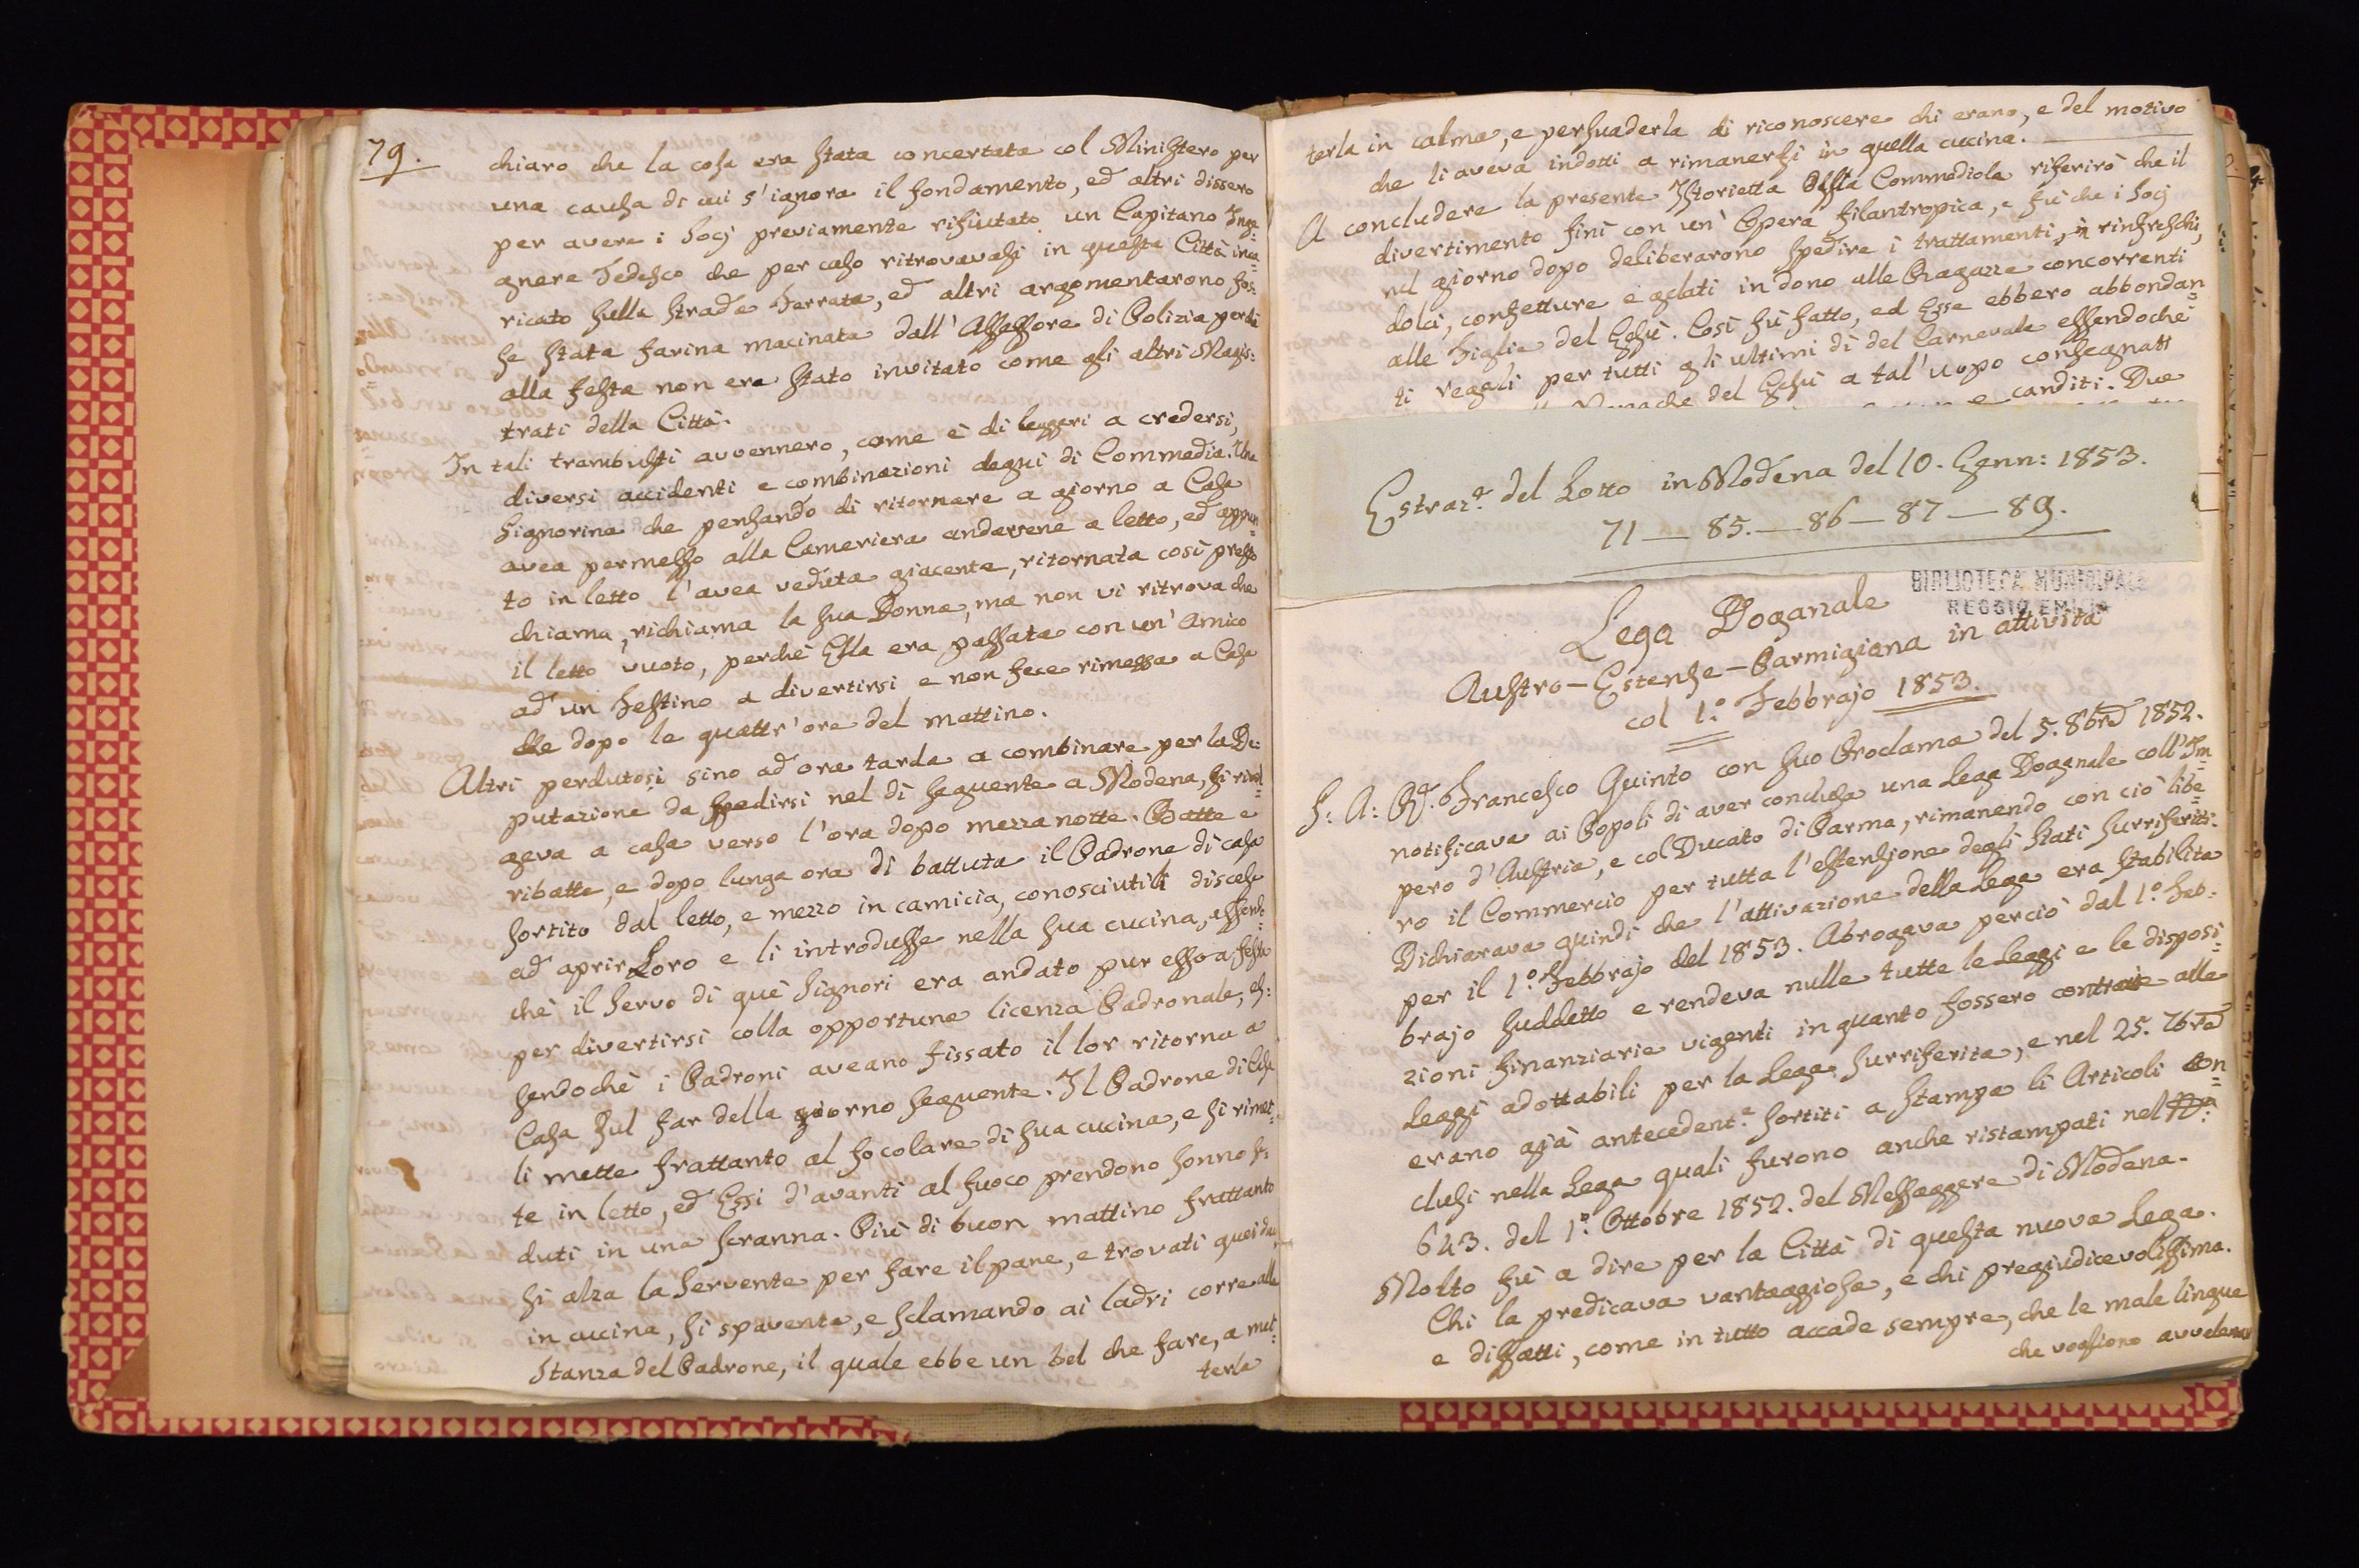 79.
chiaro che la cosa era stata concertata col Ministero per
una causa di cui s'ignora il fondamento, ed altri dissero
per avere i Socj previamente rifiutato un Capitano Inge-
gnere Tedesco che per caso ritrovavasi in questa Città inca-
ricato sulla strada ferrata, ed altri argomentarono fos-
se stata farina macinata dall'Assessore di Polizia perchè
alla festa non era stato invitato come gli altri Magis-
trati della Città.
In tali trambusti avvennero, come è di leggeri a credersi,
diversi accidenti e combinazioni degni di Commedia. Una
Signorina che pensando di ritornare a giorno a Casa
avea permesso alla Cameriera andarvene a letto, ed appun=
to in letto l'avea veduta giacente, ritornata così presto
chiama, richiama la sua Donna, ma non vi ritrova che
il letto vuoto, perchè Ella era passata con un'Amico
ad un festino a divertirsi e non fece rimessa a Casa
che dopo le quattr'ore del mattino.
Altri perdutosi sino ad ora tarda a combinare per la De-
putazione da spedirsi nel dì seguente a Modena, si rivol=
geva a casa verso l'ora dopo mezza notte. Batte e
ribatte, e dopo lunga ora di battuta il Padrone di casa
sortito dal letto, e mezzo in camicia, conosciutili discese
ad aprir Loro e li introdusse nella sua cucina, essendo=
chè il Servo di què Signori era andato pur esso a festa
per divertirsi colla opportuna licenza Padronale, es=
sendochè i Padroni aveano fissato il lor ritorno a
Casa sul far della giorno seguente. Il Padrone di Casa
li mette frattanto al focolare di sua cucina, e si rimet=
te in letto, ed Essi d'avanti al fuoco prendono sonno se=
duti in una scranna. Più di buon mattino frattanto
si alza la Servente per fare il pane, e trovati quei due
in cucina, si spaventa, e sclamando ai ladri corre alla
Stanza del Padrone, il quale ebbe un bel che fare, a met=
terla
terla in calma, e persuaderla di riconoscere chi erano, e del motivo
che li aveva indotti a rimanersi in quella cucina.
A concludere la presente Istorietta della Commediola riferirò che il
divertimento finì con un' Opera filantropica, e fù che i Socj
nel giorno dopo deliberarono spedire i trattamenti, in rinfreschi,
dolci, confetture e gelati in dono alle Ragazze concorrenti
alle Figlie del Gesù. Così fù fatto, ed Esse ebbero abbondan=
ti regali per tutti gli ultimi dì del Carnevale essendochè
Monache del Gesù a tal'uopo consegnati
e canditi. Due
Estraz.e del Lotto in Modena del 10. Genn: 1853.
71 — 85. — 86 — 87 — 89.
BIBLIOTECA MUNICIPALE
REGGIO EMILIA
Lega Doganale
Austro-Estense-Parmigiana in attività
col 1.° Febbrajo 1853.
S: A: R. Francesco Quinto con suo Proclama del 5. 8bre 1852.
notificava ai Popoli di aver conclusa una Lega Doganale coll'Im=
pero d'Austria, e col Ducato di Parma, rimanendo con ciò libe=
ro il Commercio per tutta l'estensione degli Stati surriferiti.
Dichiarava quindi che l'attivazione della Lega era stabilita
per il 1.° Febbrajo del 1853. Abrogava perciò dal 1.° Feb-
brajo suddetto e rendeva nulle tutte le Leggi e le disposi=
zioni finanziarie vigenti in quanto fossero contrarie alle
Leggi adottabili per la Lega surriferita, e nel 25. 7bre
erano già antecedent.e sortiti a stampa li Articoli con=
clusi nella Lega quali furono anche ristampati nel N.°
643. del 1.° Ottobre 1852. del Messaggere di Modena.
Molto fù a dire per la Città di questa nuova Lega.
Chi la predicava vantaggiosa, e chi pregiudicevolissima.
e difatti, come in tutto accade sempre, che le male lingue
che vogliono avvelenar